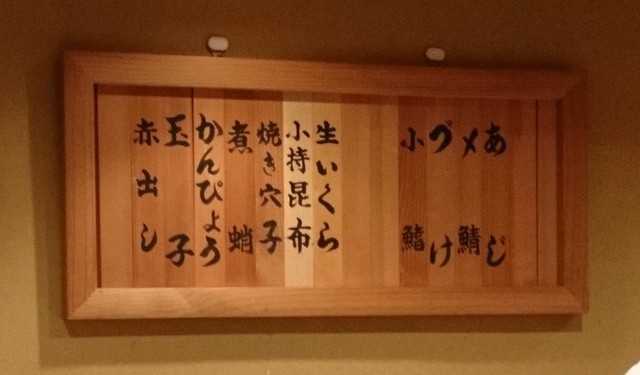 あじ
〆鯖
づけ
小鰭
生いくら
小持昆布
焼き穴子
煮蛸
かんぴょう
玉子
赤出し